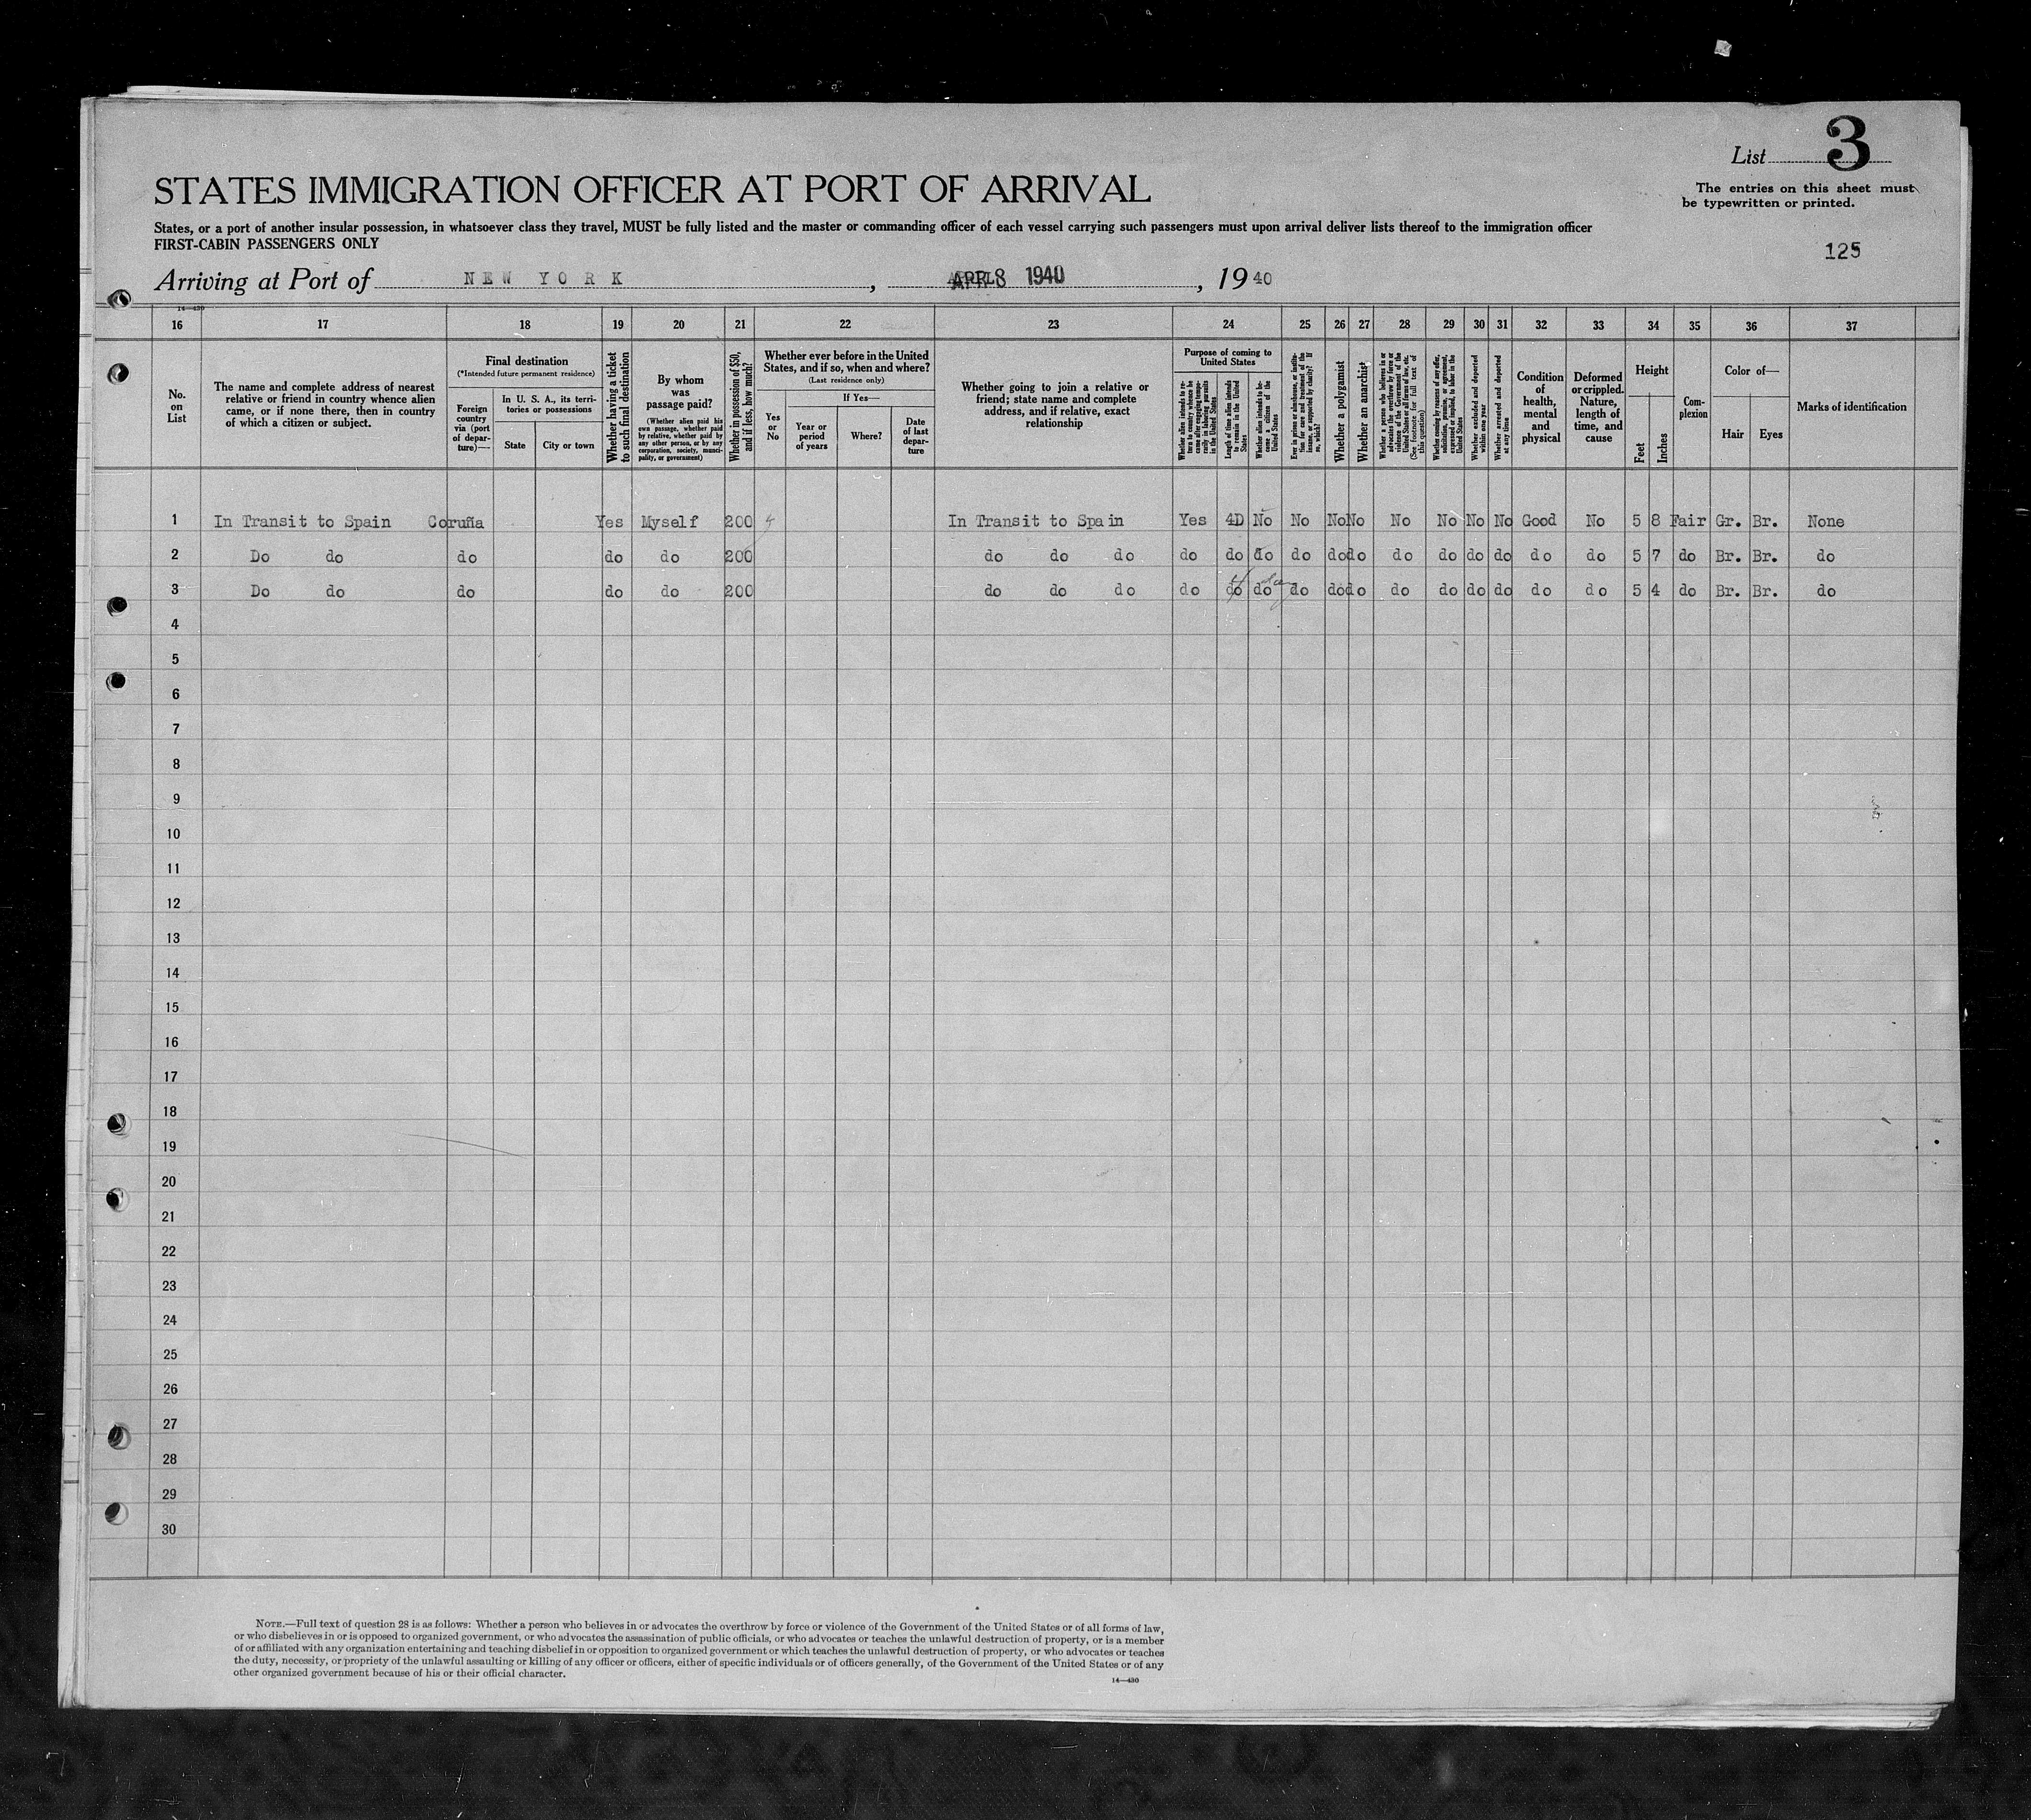 List 3
STATES IMMIGRATION OFFICER AT PORT OF ARRIVAL
The entries on this sheet must
be typewritten or printed.
States, or a port of another insular possession, in whatsoever class they travel, MUST be fully listed and the master or commanding officer of each vessel carrying such passengers must upon arrival deliver lists thereof to the immigration officer
FIRST-CABIN PASSENGERS ONLY
125
Arriving at Port of NEW YORK, APR 8 1940, 1940
14—430
16 17 18 19 20 21 22 23 24 25 26 27 28 29 30 31 32 33 34 35 36 37
No. on List
The name and complete address of nearest relative or friend in country whence alien came, or if none there, then in country of which a citizen or subject.
Final destination
(*Intended future permanent residence)
Foreign country via (port of departure)—
In U. S. A., its territories or possessions
State
City or town
Whether having a ticket to such final destination
By whom was passage paid?
(Whether alien paid his own passage, whether paid by relative, whether paid by any other person, or by any corporation, society, municipality, or government)
Whether in possession of $50, and if less, how much?
Whether ever before in the United States, and if so, when and where?
(Last residence only)
Yes or No
If Yes—
Year or period of years
Where?
Date of last departure
Whether going to join a relative or friend; state name and complete address, and if relative, exact relationship
Purpose of coming to United States
Whether alien intends to return to country whence he came after engaging temporarily in laboring pursuits in the United States
Length of time alien intends to remain in the United States
Whether alien intends to become a citizen of the United States
Ever in prison or almshouse, or institution for care and treatment of the insane, or supported by charity? If so, which?
Whether a polygamist
Whether an anarchist
Whether a person who believes in or advocates the overthrow by force or violence of the Government of the United States or all forms of law, etc. (See footnote for full text of this question)
Whether coming by reasons of any offer, solicitation, promise, or agreement, expressed or implied, to labor in the United States
Whether excluded and deported within one year
Whether arrested and deported at any time
Condition of health, mental and physical
Deformed or crippled. Nature, length of time, and cause
Height
Feet
Inches
Complexion
Color of—
Hair
Eyes
Marks of identification
1 In Transit to Spain Coruña Yes Myself 200 In Transit to Spain Yes 4D No No No No No No No No Good No 5 8 Fair Gr. Br. None
2 Do do do do do 200 do do do do do do do do do do do do do do do 5 7 do Br. Br. do
3 Do do do do do 200 do do do do do do do do do do do do do do do 5 4 do Br. Br. do
4
5
6
7
8
9
10
11
12
13
14
15
16
17
18
19
20
21
22
23
24
25
26
27
28
29
30
NOTE.—Full text of question 28 is as follows: Whether a person who believes in or advocates the overthrow by force or violence of the Government of the United States or of all forms of law,
or who disbelieves in or is opposed to organized government, or who advocates the assassination of public officials, or who advocates or teaches the unlawful destruction of property, or is a member
of or affiliated with any organization entertaining and teaching disbelief in or opposition to organized government or which teaches the unlawful destruction of property, or who advocates or teaches
the duty, necessity, or propriety of the unlawful assaulting or killing of any officer or officers, either of specific individuals or of officers generally, of the Government of the United States or of any
other organized government because of his or their official character.
14—430